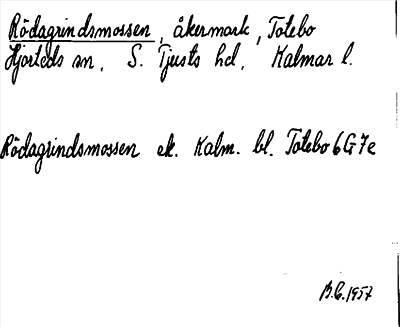 Rödagrindsmossen, åkermark, Totebo
Hjorteds sn, S. Tjusts hd, Kalmar l.
Rödagrindsmossen ek. Kalm. bl. Totebo 6G7e
B.C. 1957